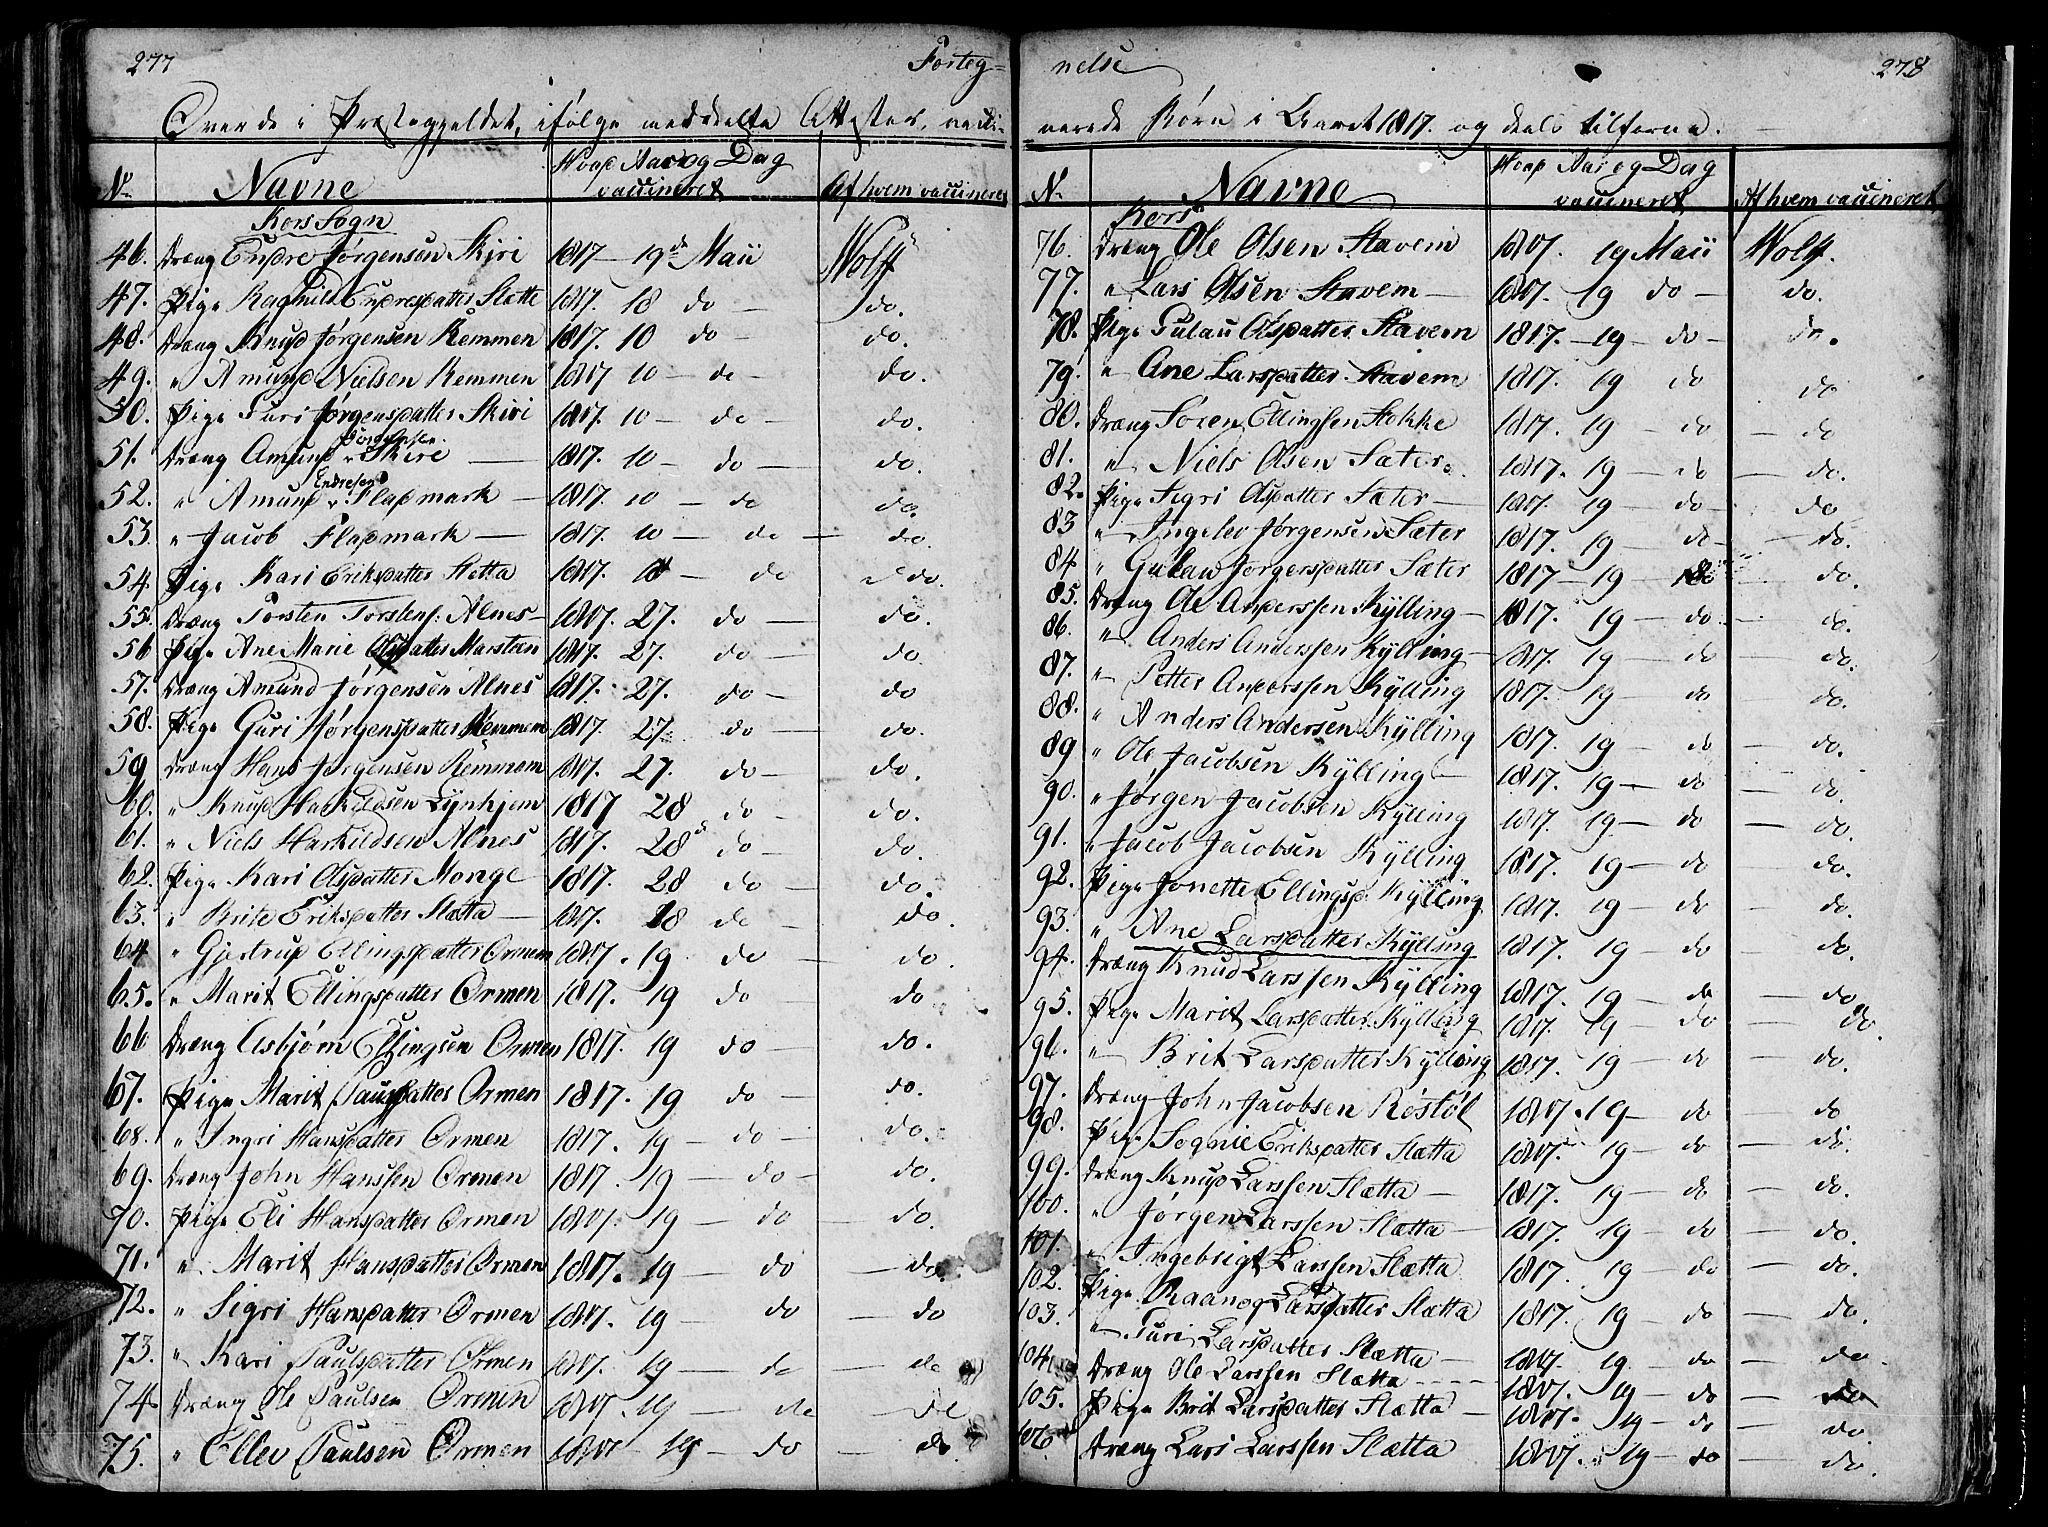 277 Forteg=
Over de i Præstegjeldet, ifølge meddeelte Attester, vacci-
No Navne Hvad Aar og Dag vaccineret Af hvem vaccineret
Kors Sogn
46. Dræng Endre Jørgensen Skiri 1817 — 19de Maii Wolff
47. Pige Ragnild Endresdatter Slette 1817. 18 do — do.
48. Dræng Knud Jørgensen Remmen 1817. 10 do — do.
49. " Amund Nielsen Remmen 1817 10 — do — do.
50. Pige Guri Jørgensdatter Skiri 1817. 10 — do — do.
51. Dræng Amund Jørgensen Skire — 1817. 10 — do — do.
52. " Amund Endresen Fladmark — 1817. 10 — do do.
53. " Jacob Fladmark — 1817. 10 — do — do.
54. Pige Kari Eriksdatter Sletta 1817. — do do.
55. Dræng Torsten Torstens: Alnes — 1817. 27. do — do.
56 Pige Ane Marie Olsdatter Marstæn 1817. 27. do — do.
57. Dræng Amund Jørgensen Alnes 1817. 27. do — do
58. Pige Guri Jørgensdatter Remmem 1817. 27. do — do.
59 Dræng Hans Jørgensen Remmem 1817. 27. do — do.
60. " Knud Harkildsen Lynhjem 1817 28 do — do.
61. " Niels Harkildsen Alnes 1817. 28 do — do.
62. Pige Kari Olsdatter Monge 1817. 28 do — do.
63. " Brite Eriksdatter Slætta — 1817. 28 do — do
64 " Gjertrud Ellingsdatter Ormem 1817. 19 do — do.
65. " Marit Ellingsdatter Ormen 1817. 19 do — do
66 Dræng Asbjørn Ellingsen Ormen 1817. 19 do — do.
67. Pige Marit Paulsdatter Ormen 1817. 19 do — do.
68. " Ingri Hansdatter Ormen 1817. 19 — do — do.
69. Dræng John Hanssen Ormen 1817. 19 — do — do.
70. Pige Eli Hansdatter Ormen 1817. 19 — do — do.
71. " Marit Hansdatter Ormen 1817. 19 — do — do.
72. " Sigri Hansdatter Ormen 1817. 19 — do — do
73. " Kari Paulsdatter Ormen 1817. 19 — do — do
74. Dræng Ole Paulsen Ormen 1817. 19 — do — do
75. " Ellev Paulsen Ormen 1817 — 19 — do — do
nelse 278
nerede Børn i Aaret 1817. og deels tilforne. —
No Navne Hvad Aar og Dag vaccineret Af hvem vaccineret
Kors
76. Dræng Ole Olsen Stavem 1817. 19 Maii Wolff.
77. " Lars Olsen Stavem — 1817. 19 do — do.
78. Pige Gulau Olsdatter Stavem 1817. — 19 — do — do.
79. " Ane Larsdatter Stavem 1817. 19 do do
80. Dræng Søren Ellingsen Stokke 1817. 19 — do — do
81. " Niels Olsen Sæter. 1817. 19 — do — do.
82. Pige Sigri Olsdatter Sæter — 1817. 19 — do — do
83 " Ingelev Jørgensen Sæter 1817. 19 — do — do.
84 " Gulau Jørgensdatter Sæter 1817 — 19 — do — do.
85. Dræng Ole Anderssen Kylling — 1817. 19 — do — do.
86. " Anders Anderssen Kylling — 1817. 19 — do — do.
87. " Petter Anderssen Kylling 1817. 19 — do — do.
88. " Anders Andersen Kylling 1817. 19 — do — do.
89 " Ole Jacobsen Kylling — 1817. 19 — do — do.
90. " Jørgen Jacobsen Kylling 1817. 19 — do — do.
91. " Jacob Jacobsen Kylling 1817. 19 — do — do.
92. Pige Jonette Ellingsd. Kylling 1817. 19 — do — do.
93. " Ane Larsdatter Kylling 1817. 19 — do — do.
94. Dræng Knud Larssen Kylling 1817. 19 — do — do
95. Pige Marit Larsdatter Kylling 1817. 19 — do — do.
96. " Brit Larsdatter Kylling 1817. 19 — do — do.
97. Dræng John Jacobsen Røstøl 1817. 19 — do — do
98. Pige Eriksdatter Slætta 1817. 19 — do — do.
99. Dræng Knud Larssen Slætta — 1817. 19 — do — do.
100. " Jørgen Larssen Slætta — 1817. 19 — do — do.
101. " Ingebrigt Larssen Slætta 1817. 19 — do — do.
102. Pige Raanog Larsdatter Slætta 1817. 19 — do — do.
103. " Guri Larsdatter Slætta — 1817. 19. — do — do.
104. Dræng Ole Larssen Slætta 1817. 19 — do — do
105. Pige Brit Larsdatter Slætta — 1817. 19 — do — do.
106 Dræng Lars Larssen Slætta 1817. 19 — do — do.